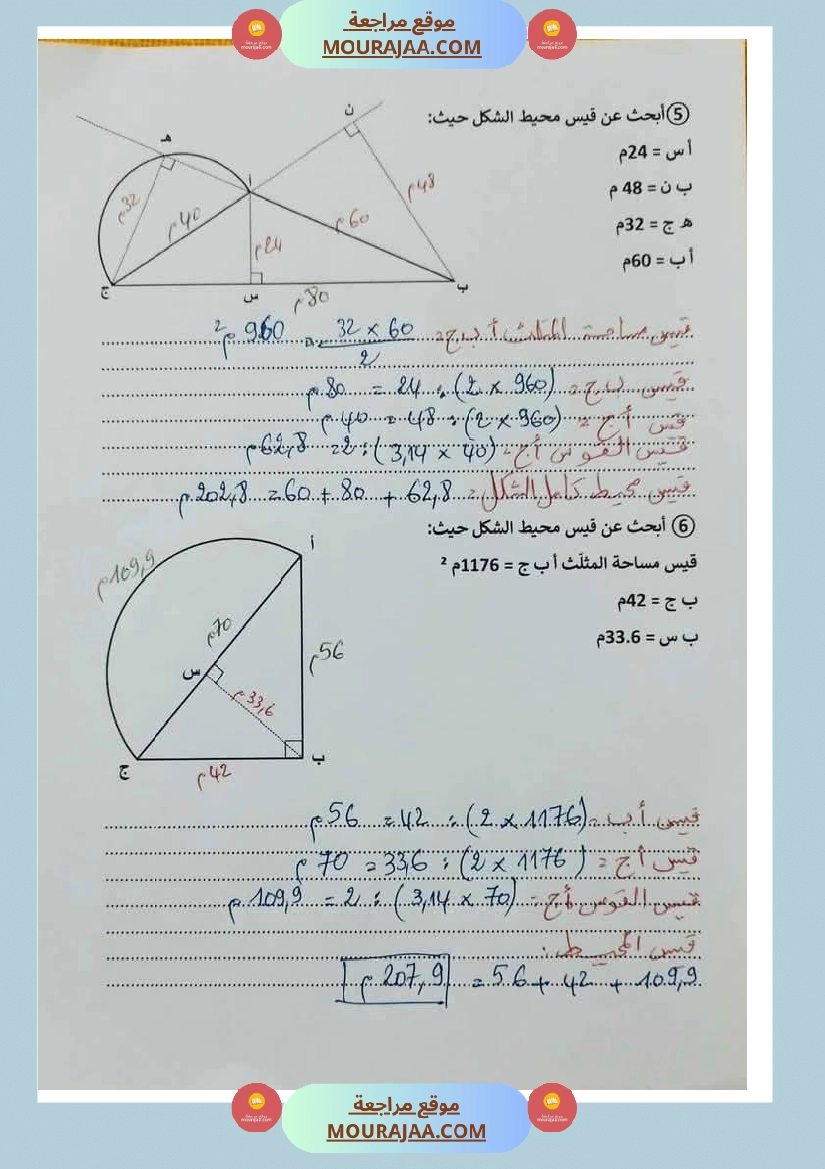 موقع مراجعة
MOURAJAA.COM
⑤ أبحث عن قيس محيط الشكل حيث:
أ س = 24م
ب ن = 48 م
هـ ج = 32م
أ ب = 60م
ن
هـ
أ
32م
40م
24م
60م
48م
ج
س
ب
80م
قيس مساحة المثلث أ ب ج = 60 × 32 / 2 = 960 م²
قيس ب ج = (960 × 2) ÷ 24 = 80 م
قيس أ ج = (960 × 2) ÷ 48 = 40 م
قيس القوس أ ج = (40 × 3,14) ÷ 2 = 62,8 م
قيس محيط كامل الشكل = 62,8 + 80 + 60 = 202,8 م
⑥ أبحث عن قيس محيط الشكل حيث:
قيس مساحة المثلّث أ ب ج = 1176م ²
ب ج = 42م
ب س = 33.6م
أ
109,9م
70م
56م
س
33,6م
ج
ب
42م
قيس أ ب = (1176 × 2) ÷ 42 = 56 م
قيس أ ج = (1176 × 2) ÷ 33,6 = 70 م
قيس القوس أ ج = (70 × 3,14) ÷ 2 = 109,9 م
قيس المحيط :
109,9 + 42 + 56 = 207,9 م
موقع مراجعة
MOURAJAA.COM